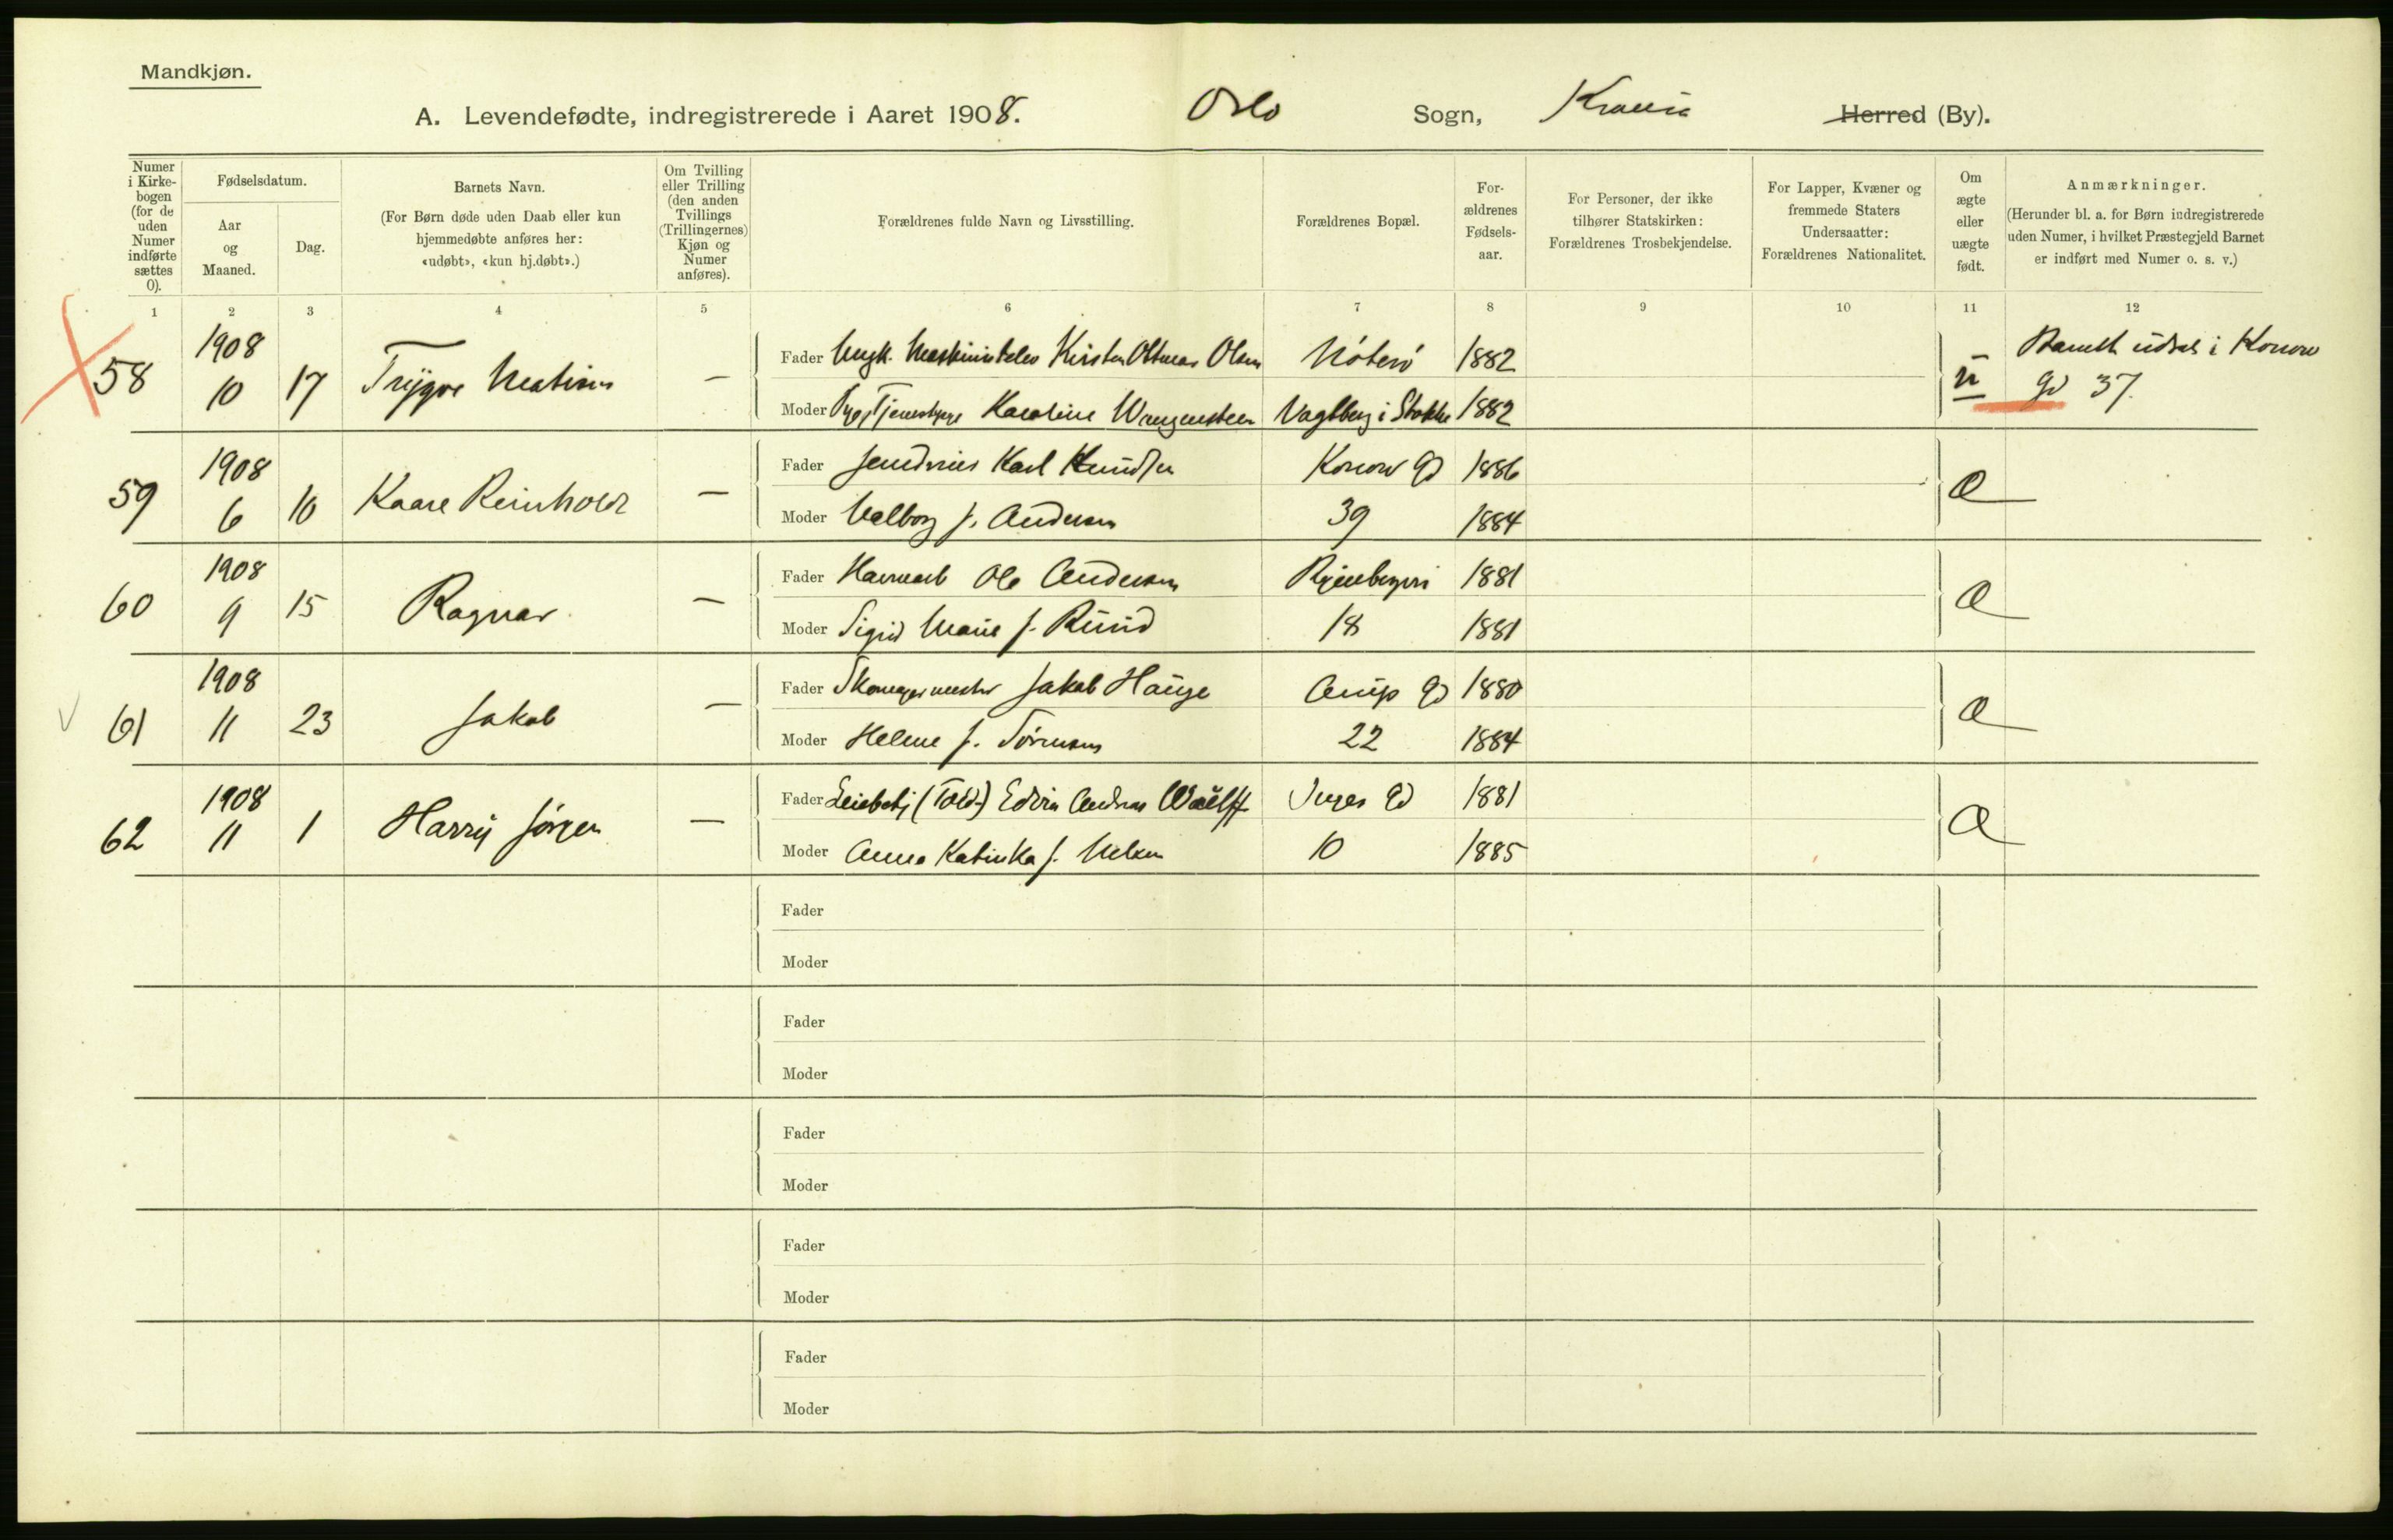 Mandkjøn.
A. Levendefødte, indregistrerede i Aaret 1908. Oslo Sogn, Krania Herred (By).
Numer i Kirkebogen (for de uden Numer indførte sættes 0).
Fødselsdatum.
Aar og Maaned.
Dag.
Barnets Navn.
(For Børn døde uden Daab eller kun hjemmedøbte anføres her: «udøbt», «kun hj.døbt».)
Om Tvilling eller Trilling (den anden Tvillings (Trillingernes) Kjøn og Numer anføres).
Forældrenes fulde Navn og Livsstilling.
Forældrenes Bopæl.
Forældrenes Fødselsaar.
For Personer, der ikke tilhører Statskirken: Forældrenes Trosbekjendelse.
For Lapper, Kvæner og fremmede Staters Undersaatter: Forældrenes Nationalitet.
Om ægte eller uægte født.
Anmærkninger.
(Herunder bl. a. for Børn indregistrerede uden Numer, i hvilket Præstegjeld Barnet er indført med Numer o. s. v.)
1 2 3 4 5 6 7 8 9 10 11 12
58 1908 10 17 Trygve —
Fader Ungk. Olsen Nøterø 1882
Moder Pige, Karoline Stokke 1882
u
i Konow gd 37.
59 1908 6 10 Kaare Reinhold —
Fader Karl Knudsen Konow Gd 1886
Moder Valborg f. Andersen 39 1884
60 1908 9 15 Ragnar —
Fader Havnearb Ole Andersen 1881
Moder Sigrid Marie f. Rund 18 1881
61 1908 11 23 Jakob —
Fader Skomagermester Jakob Hauge Arups Gd 1880
Moder Helene f. Sørensen 22 1884
62 1908 11 1 Harry Jørgen —
Fader (Told-) Edvin Andreas Wulff Inges Gd 1881
Moder Anna Katinka f. Nilsen 10 1885
Fader
Moder
Fader
Moder
Fader
Moder
Fader
Moder
Fader
Moder